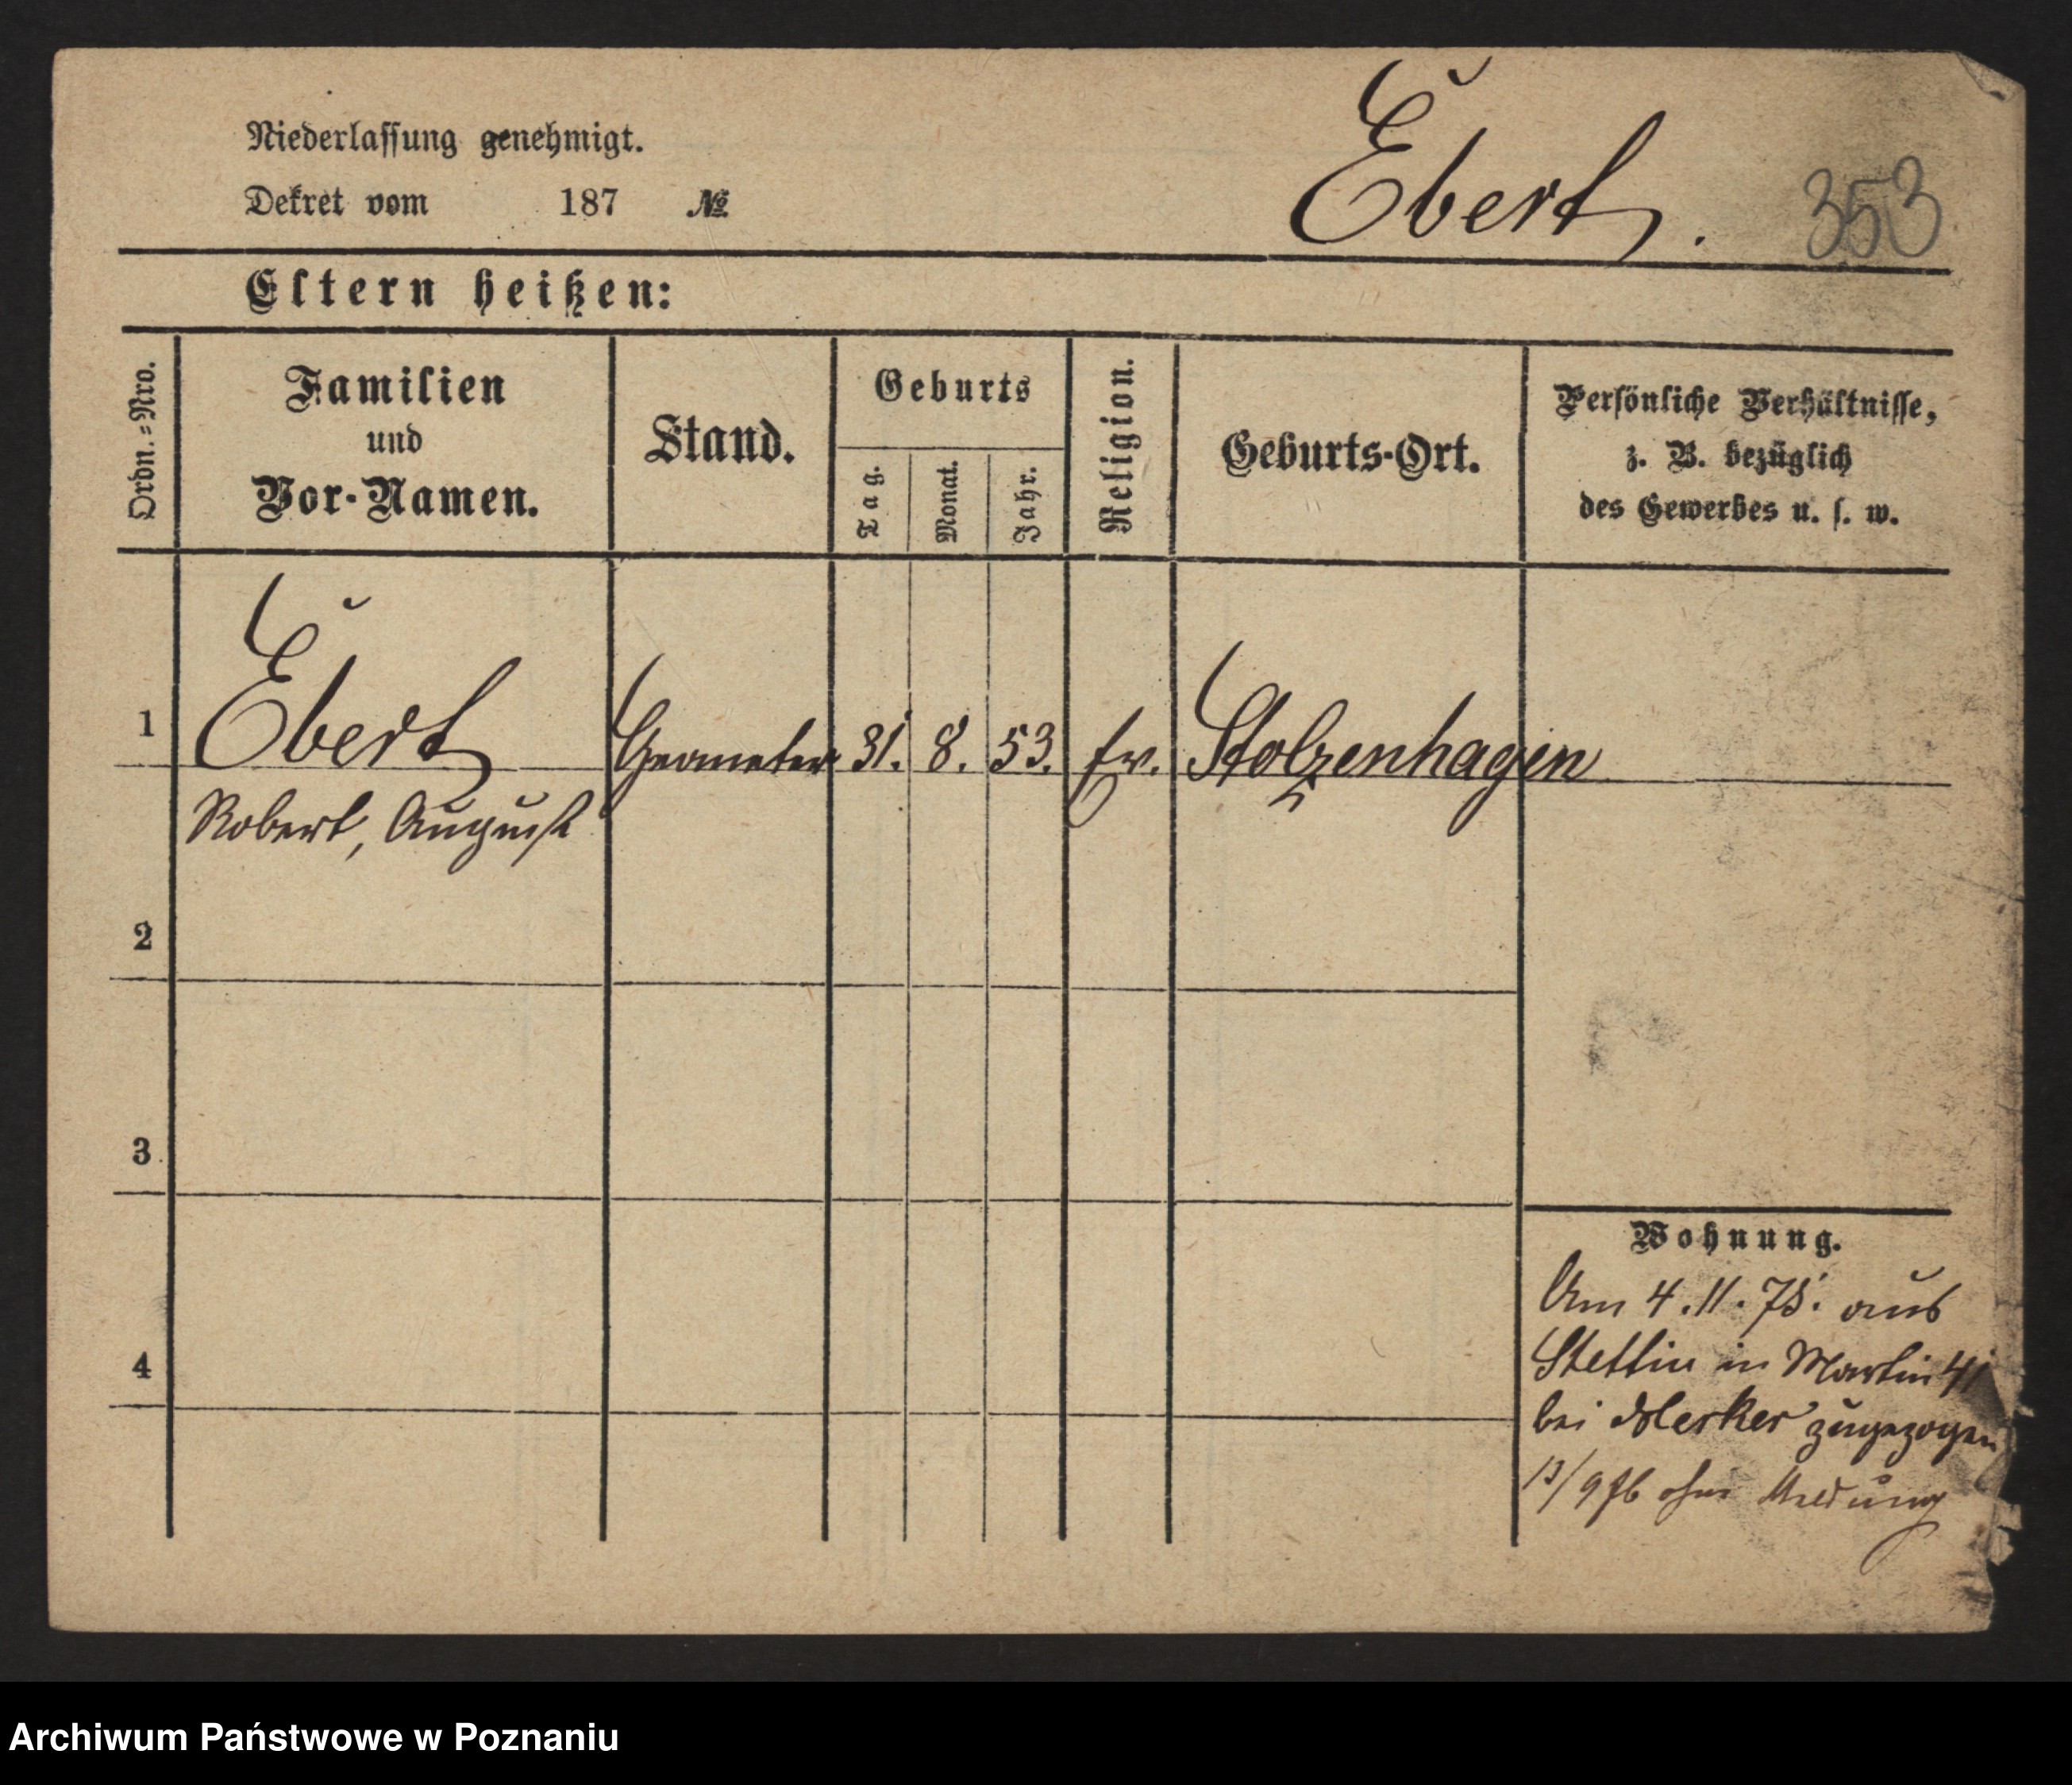 Niederlassung genehmigt.
Dekret vom 187 №
Ebert. 353
Eltern heißen:
Ordn.=Nro.
Familien
und
Vor-Namen.
Stand.
Geburts
Tag.
Monat.
Jahr.
Religion.
Geburts-Ort.
Persönliche Verhältnisse,
z. B. bezüglich
des Gewerbes u. s. w.
1 Ebert Geometer 31. 8. 53. Ev. Stolzenhagen
Robert, August
2
3
4
Wohnung.
Am 4.11.75. aus
Stettin in Martin 41
bei zugezogen
13/9 76 ohne Meldung
Archiwum Państwowe w Poznaniu